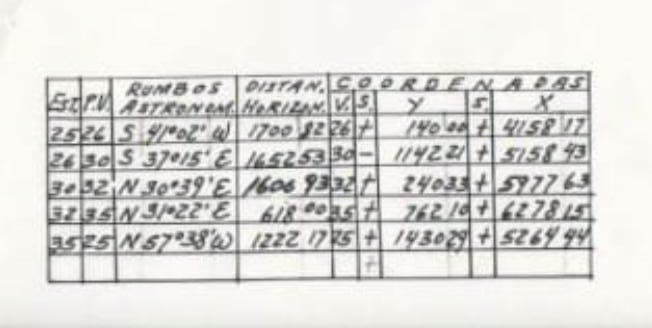 RUMBOS DISTAN. COORDENADAS
EST. P.V. ASTRONOM. HORIZON. V. S. Y S. X
25 26 S 41°02' W 1700 82 26 + 140 00 + 4158 17
26 30 S 37°15' E 1652 53 30 - 1142 21 + 5158 43
30 32 N 30°39' E 1606 93 32 + 240 33 + 5977 63
32 35 N 31°22' E 618 00 35 + 762 10 + 6278 15
35 25 N 57°38' W 1222 17 25 + 1430 29 + 5264 44
+